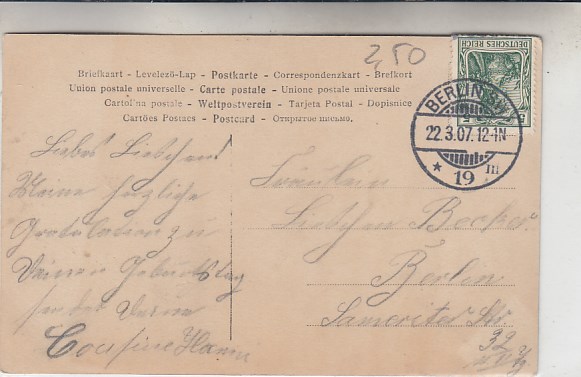 2,50
DEUTSCHES REICH
Briefkaart - Levelező-Lap - Postkarte - Correspondenzkart - Brefkort
Union postale universelle - Carte postale - Unione postale universale
Cartolina postale - Weltpostverein - Tarjeta Postal - Dopisnice
Cartões Postaes - Postcard - Открытое письмо.
BERLIN
22.3.07. 12-1N
* 19 III
Liebes Lieschen!
Meine herzliche
Gratulation zu
Deinem Geburtstag
Deine
Cousine Hanna
Fräulein
Lieschen Becker
Berlin
Samariter Str.
32